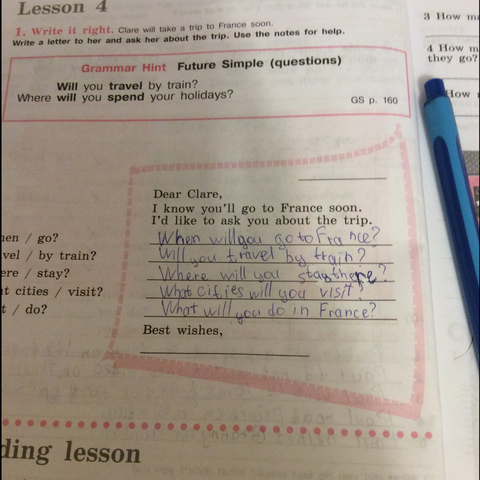 Lesson 4
1. Write it right. Clare will take a trip to France soon.
Write a letter to her and ask her about the trip. Use the notes for help.
Grammar Hint Future Simple (questions)
Will you travel by train?
Where will you spend your holidays?
GS p. 160
3 How
4 How
they go?
How
Dear Clare,
I know you'll go to France soon.
I'd like to ask you about the trip.
/ go?
When will you go to France?
/ by train?
Will you travel by train?
/ stay?
Where will you stay there?
cities / visit?
What cities will you visit?
/ do?
What will you do in France?
Best wishes,
lesson